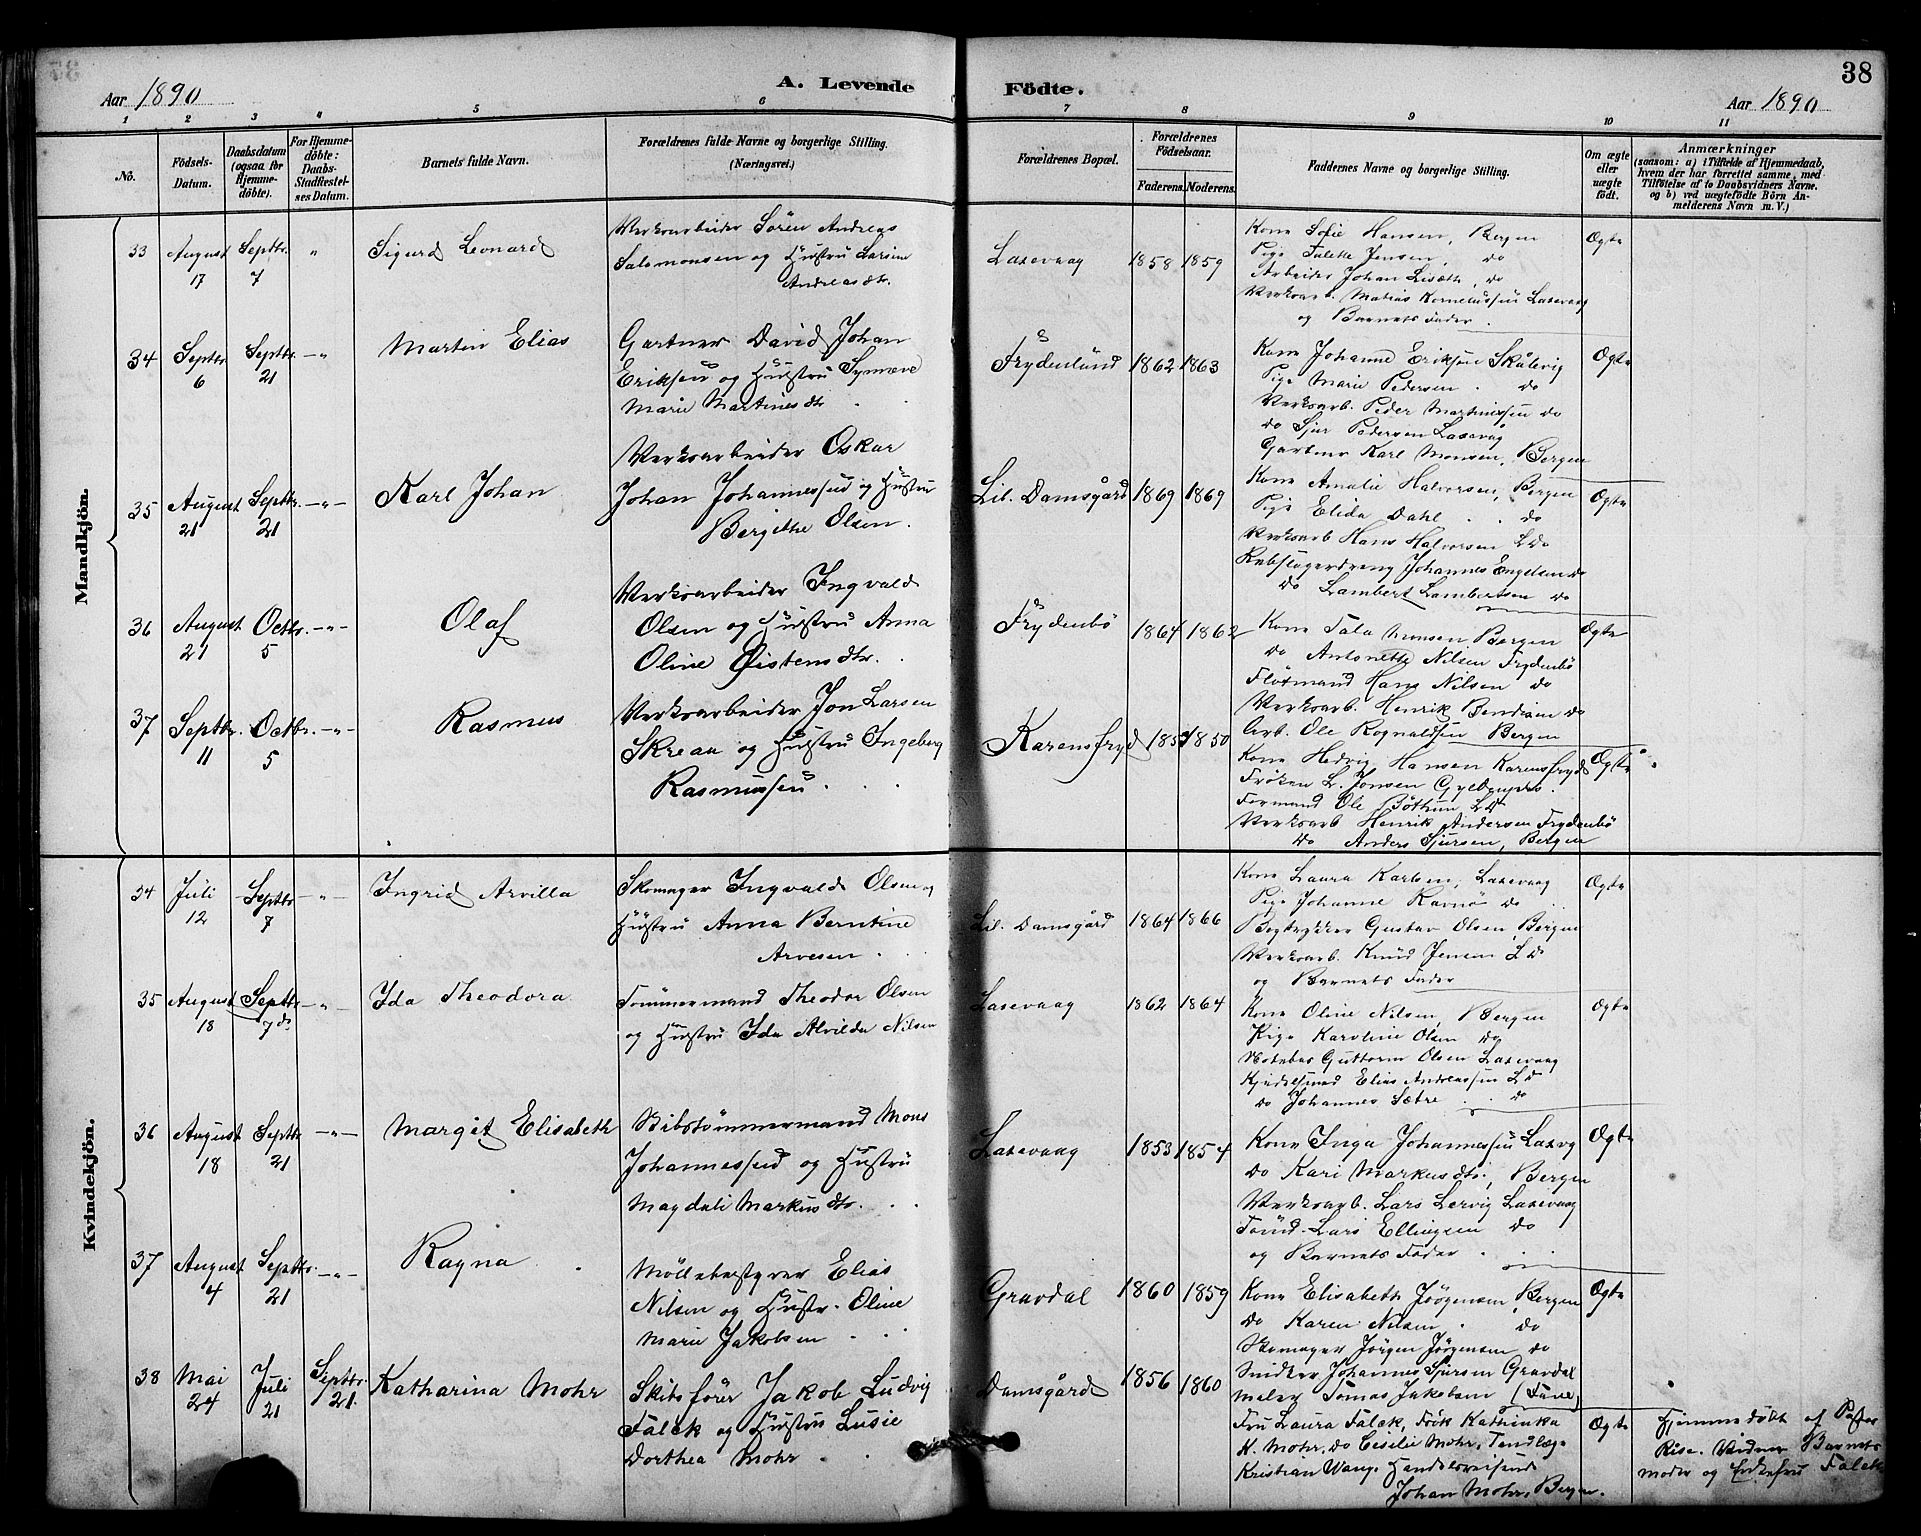 38
Aar 1890
A. Levende Födte.
Aar 1890
1 2 3 4 5 6 7 8 9 10 11
No.
Födsels-Datum.
Daabsdatum (ogsaa for Hjemme-döbte).
For Hjemme-döbte: Daabs-Stadfæstel-ses Datum.
Barnets fulde Navn.
Forældrenes fulde Navne og borgerlige Stilling. (Næringsvei.)
Forældrenes Bopæl.
Forældrenes Födselsaar.
Faderens. Moderens.
Faddernes Navne og borgerlige Stilling.
Om ægte eller uægte födt.
Anmærkninger
(saasom: a) i Tilfælde af Hjemmedaab,
hvem der har forrettet samme, med
Tilföielse af to Daabsvidners Navne.
og b) ved uægtefödte Börn An-
melderens Navn m. V.)
Mandkjön.
33 August 17 Septbr. 7 " Sigurd Leonard
Verksarbeider Sören Andreas
Salomonsen og Hustru Larsine
Andreasdtr.
Laxevaag 1858 1859
Kone Sofie Hansen, Bergen
Pige Jensen, do
Arbeider Johan Lisæth, do
Verksarb. Matias Korneliussen Laxevaag
og Barnets Fader.
Ægte
34 Septbr 6 Septbr. 21 -"- Martin Elias
Gartner David Johan
Eriksen og Hustru Synneve
Marie Martinesdtr.
Frydenlund 1862 1863
Kone Johanne Eriksen Skålevig
Pige Marie Pedersen . do
Verksarb. Peder Martinussen do
do Sjur Pedersen Laxevåg
Gartner Karl Monsen, Bergen
Ægte
35 August 21 Septbr. 21 -"- Karl Johan
Verksarbeider Oskar
Johan Johannessen og Hustru
Bergithe Olsen.
Lil. Damsgård 1869 1869
Kone Amalie Halvorsen, Bergen
Pige Elida Dahl . . do
Verksarb Hans Halvorsen L do
Rebslagerdreng Johannes Engelsen do
do Lambert Lambertsen do
Ægte
36 August 21 Octbr. 5 -"- Olaf
Verksarbeider Ingvald
Olsen og Hustru Anna
Oline Øistensdtr.
Frydenbö 1864 1862
Kone Bergen
do Antonette Nilsen Frydenbö
Flötmand Hans Nilsen do
Verksarb. Henrik Bendixen do
Arb. Ole Rognaldsen Bergen
Ægte
37 Septbr. 11 Octbr. 5 -"- Rasmus
Verksarbeider Jon Larsen
Skreaa og Hustru Ingeborg
Rasmussen
Karensfryd 1850
Kone Hedvig Hansen Karensfryd
Fröken L. Jonsen
Formand Ole Böthun, L do
Verksarb Henrik Andersen Frydenbö
do Anders Sjursen, Bergen
Ægte
Kvindekjön.
34 Juli 12 Septbr 7 -"- Ingrid Arvilla
Skomager Ingvald Olsen og
Hustru Anna Berntine
Arvesen
Lil. Damsgård 1864 1866
Kone Laura Karlsen, Laxevaag
Pige Johanne Ravnö do
Bogtrykker Gustav Olsen, Bergen
Verksarb. Knud Jensen L do
og Barnets Fader
Ægte
35 August 18 Septbr 7 d. -"- Ida Theodora
Tömmermand Theodor Olsen
og Hustru Ida Alvilda Nilsen
Laxevaag 1862 1864
Kone Oline Nilsen, Bergen
Pige Karoline Olsen do
Guttorm Olsen Laxevaag
Elias Andreassen L do
do Johannes Sætre . . do
Ægte
36 August 18 Septbr 21 -"- Margit Elisabeth
Skibstömmermand Mons
Johannessen og Hustru
Magdali Markusdtr.
Laxevaag 1853 1854
Kone Inga Johannessen Laxevg
do Kari Markusdtr, Bergen
Verksarb. Lars Lervig Laxevaag
Tömd. Lars Ellingsen do
og Barnets Fader
Ægte
37 August 4 Septbr. 21 -"- Ragna
Möllebestyrer Elias
Nilsen og Hustr. Oline
Marie Jakobsen
Gravdal 1860 1859
Kone Elisabeth Jörgensen, Bergen
do Karen Nilsen . do
Skomager Jörgen Jörgensen do
Snidker Johannes Sjursen Gravdal
Maler Tomas Jakobsen (Fane)
Ægte
38 Mai 24 Juli 21 Septbr. 21. Katharina Mohr
Skibsförer Jakob Ludvig
Falck og Hustru Lusie
Dorthea Mohr
Damsgård 1856 1860
Fru Laura Falck, Frök Kathinka
K. Mohr, do Cisilie Mohr, Tandlæge
Kristian Wang, Handelsreisend
Johan Mohr, Bergen.
Ægte
Hjemmedöbt af Pastor
Rise. Vidner Barnets
moder og Enkefru Falck